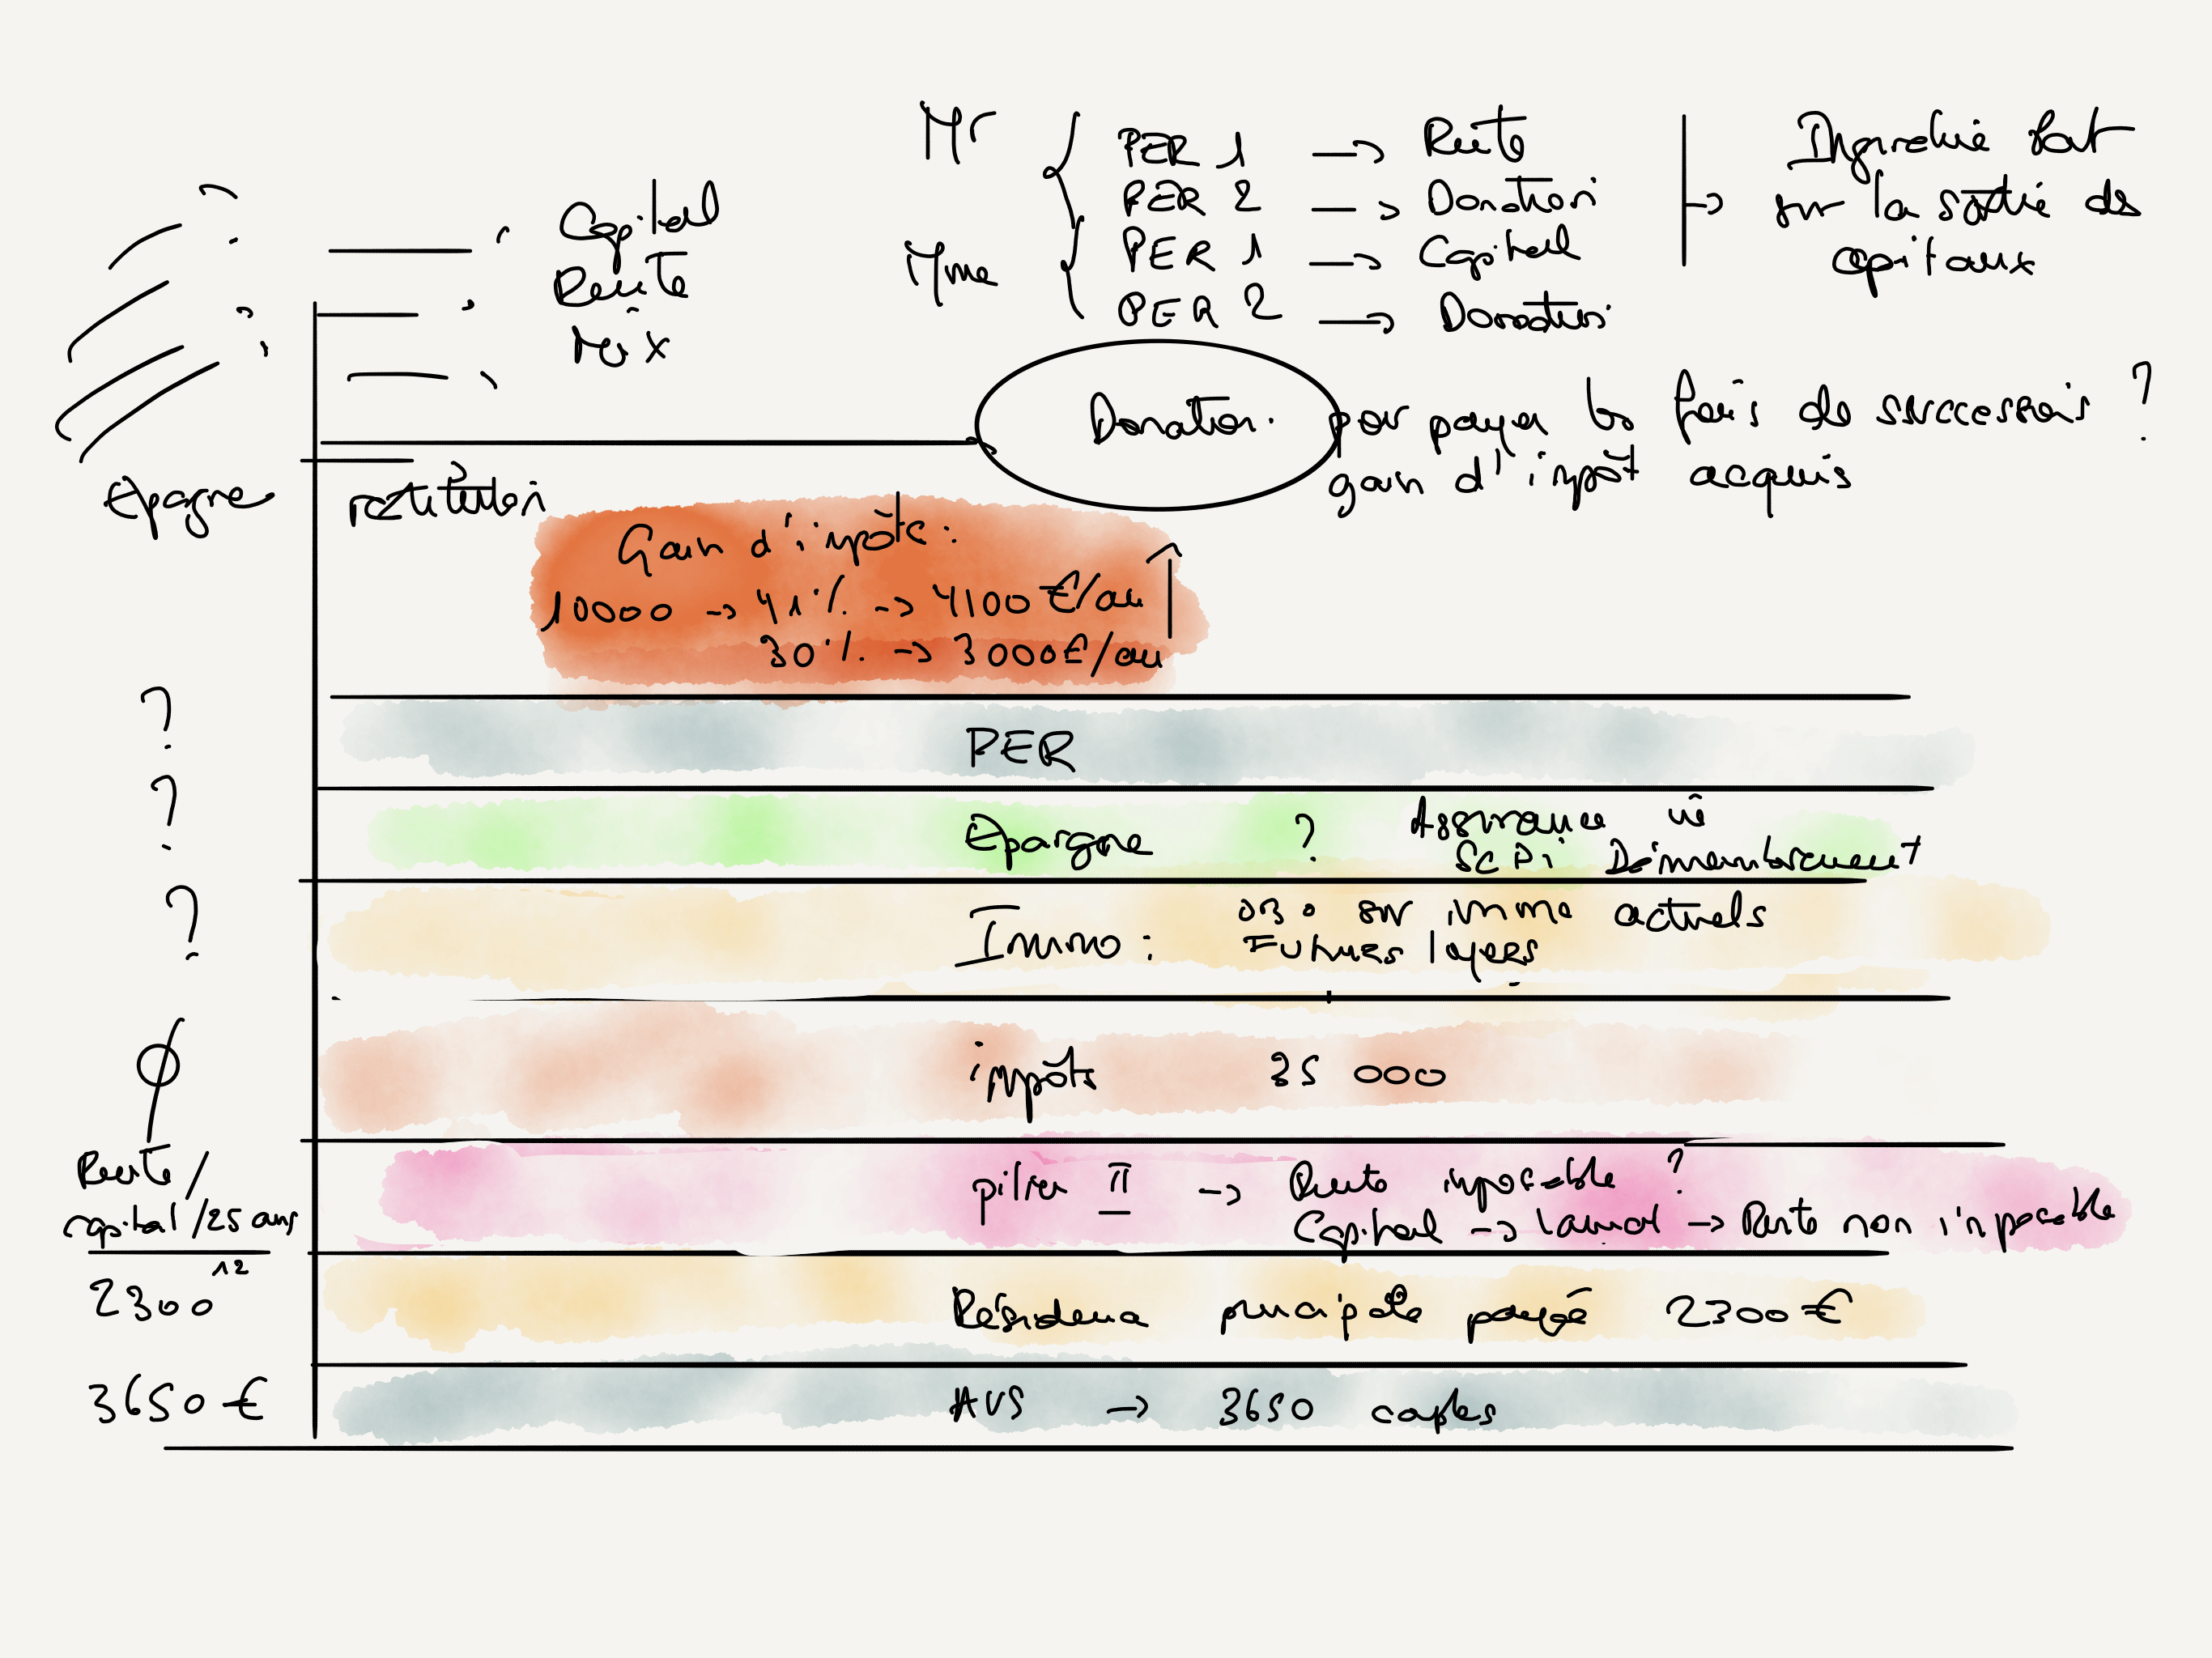 Mr PER 1 → Rente
PER 2 → Donation
Mme PER 1 → Capital
PER 2 → Donation
Ingénierie fort
sur la sortie des
capitaux
Capital
Rente
Mix
Donation. pour payer les frais de successions ?
gain d'impôt acquis
Epagne
restitution
Gain d'impôts :
10000 → 41 % → 4100 €/an
30 % → 3000 €/an
? PER
? Epargne ? Assurance vie
SCPI Démembrement
? Immo : sur immo actuels
Futurs loyers
impôts 35 000
Rente /
capital /25 ans
12
pilier II → Rente imposable ?
Capital → → Rente non imposable
2300 Résidence principale payée 2300 €
3650 € AVS → 3650 couples